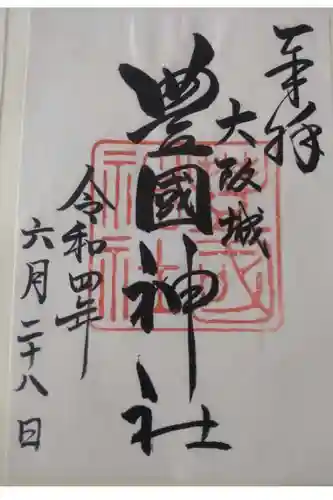 奉拝
大阪城
豊國神社
令和四年
六月二十八日